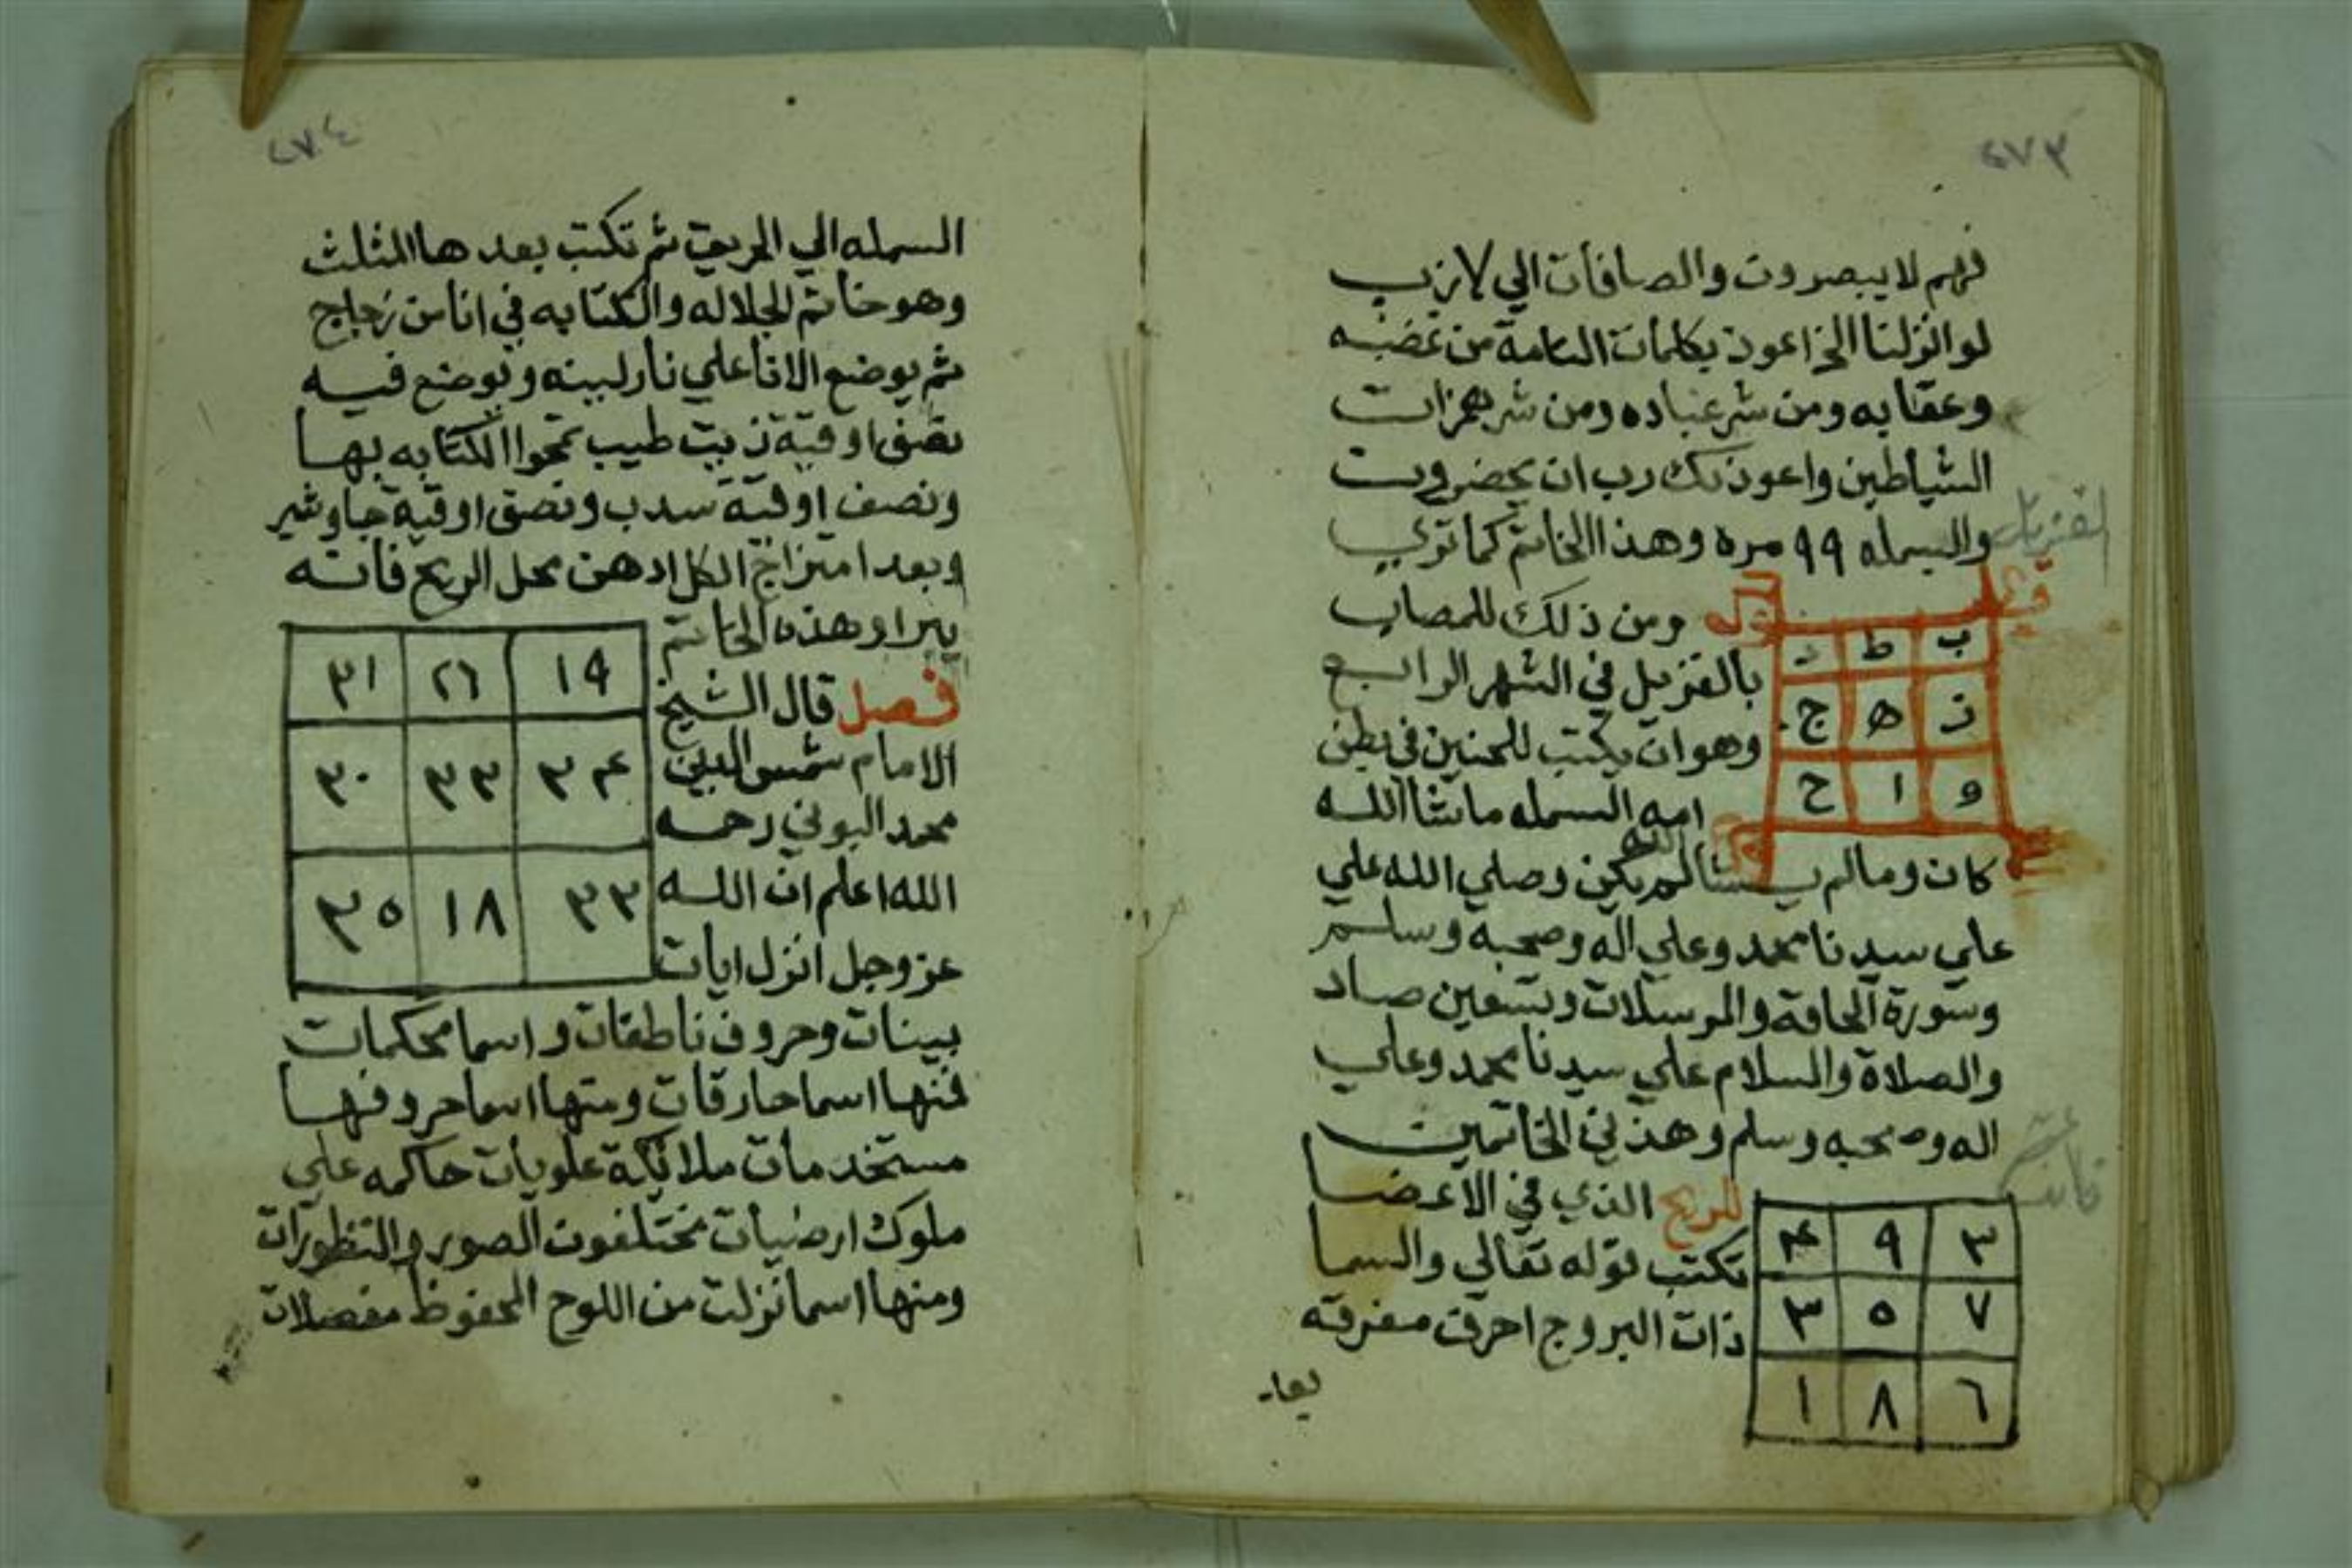 ٤٧٣
فهم لا يبصرون والصافات الي لازب
لو انزلنا الخ اعوذ بكلمات التامة من غضبه
وعقابه ومن شر عباده ومن شر همزات
الشياطين واعوذ بك رب ان يحضرون
والبسمله ٩٩ مره وهذا الخاتم كما تري
ب ط د
ز ه ج
و ا ح
ومن ذلك للمصاب
بالقزيل في الشهر الرابع
وهو ان يكتب للجنين في بطن
امه البسمله ما شا الله
كان وما لم يشا الله لم يكن وصلي الله علي
علي سيدنا محمد وعلي اله وصحبه وسلم
وسورة الحاقة والمرسلات وتسعين صاد
والصلاة والسلام علي سيدنا محمد وعلي
اله وصحبه وسلم وهذين الخاتمين
للريح الذي في الاعضا
تكتب قوله تعالي والسما
ذات البروج احرف مفرقه
٣ ٩ ۴
٧ ٥ ٣
٦ ٨ ١
٤٧٤
البسمله الي الحريق ثم تكتب بعدها المثلث
وهو خاتم الجلاله والكتابه في انا من زجاج
ثم يوضع الانا علي نار لينه ويوضع فيه
نصف اوقية زيت طيب تمحوا الكتابه بها
ونصف اوقية سدب ونصف اوقية جاوشير
وبعد امتزاج الكل ادهن محل الريح فانه
يبرا وهذه الخاتم
١٩ ٢٦ ٣١
٣۴ ٣٣ ٣٠
٣٣ ١٨ ٣٥
فصل قال الشيخ
الامام شمس الدين
محمد البوني رحمه
الله اعلم ان الله
عز وجل انزل ايات
بينات وحروف ناطقات واسما محكمات
فمنها اسما حارقات ومنها اسما حروفها
مستخدمات ملائكة علويات حاكمه علي
ملوك ارضيات مختلفون الصور والتطورات
ومنها اسما نزلت من اللوح المحفوظ مفصلات